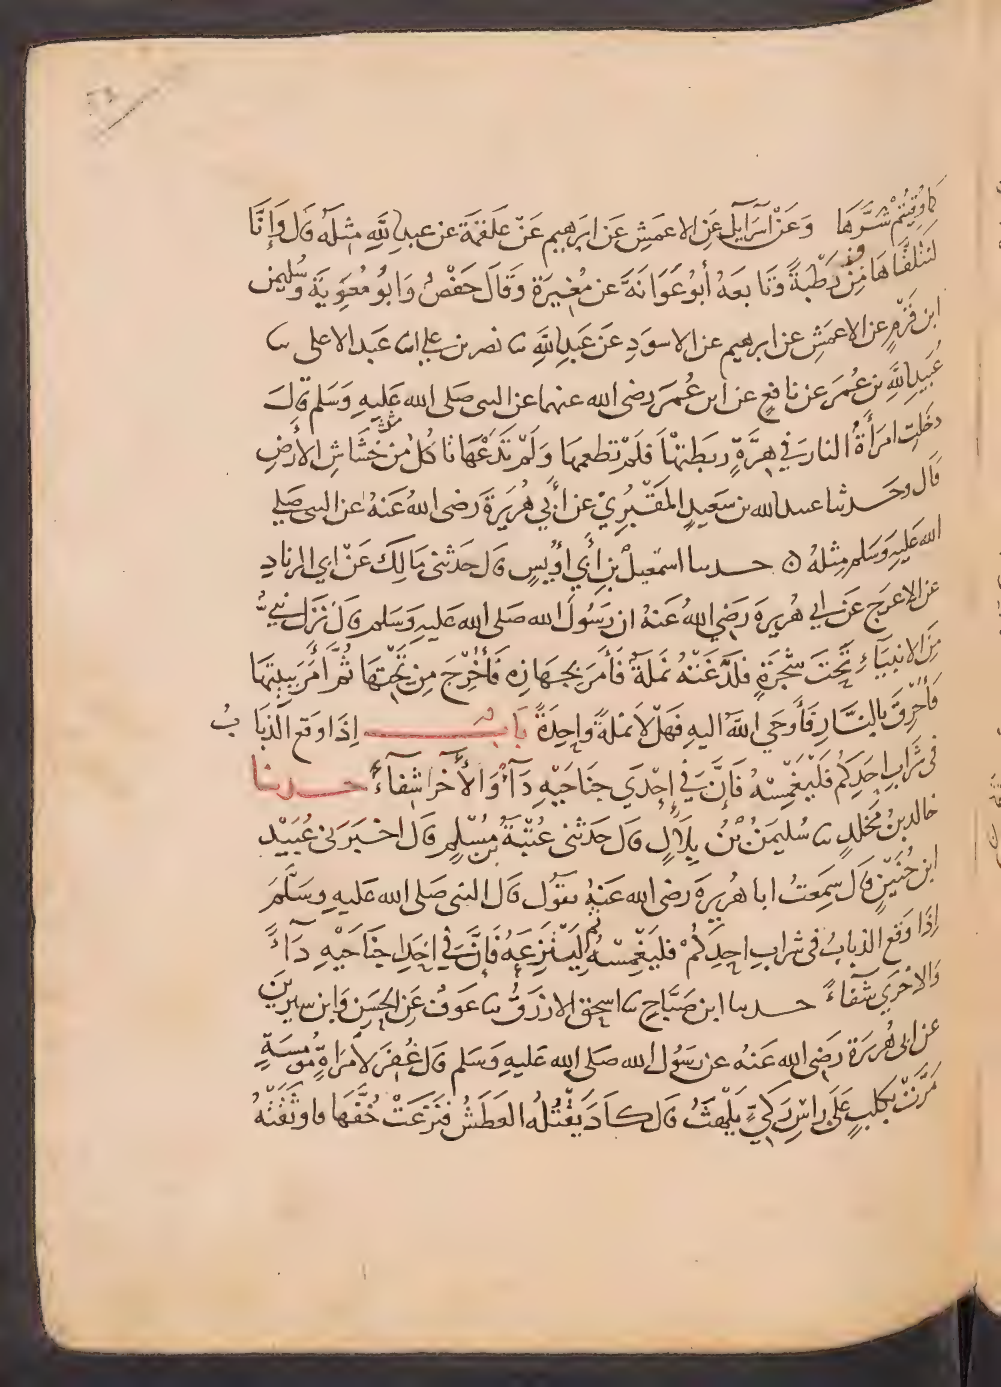 كما وُقِيتُمْ شَرَّهَا وَعَنْ اسَرَآئيل عَنِ الاعمَشِ عَن ابرهيم عَنْ عَلقَمَة عن عبدِ اللَّهِ مثله قَالَ وَإِنَّا
لنَتَلَقَّاهَا مِنْ فيه رَطْبَةً وَتَا بعَهُ أَبُو عَوَانَةَ عن مُغِيرَة وَقَالَ حَفْصٌ وَابُو مُعَوِيَة وسُليمن
ابن قَرْمٍ عن الاعمَشِ عن ابرهيم عن الاسوَدِ عَن عَبدِ اللَّهِ نا نصر بن علي انا عَبد الاعلى نا
عُبَيد اللَّهِ بن عُمَرَ عن نافعٍ عن ابن عُمَرَ رضى الله عنهما عن النبى صَلى الله عَلَيهِ وَسَلم قَالَ
دخَلتِ امرَأَةٌ النار في هِرَّةٍ ربَطتهَا فلَمْ تطعمها وَلَمْ تَدَعْهَا تاكُلْ مِن خَشَاشِ الأَرضِ
قَال وحَدثنا عبيد الله بن سَعِيدٍ المَقبُرِيّ عن أبي هُرَيرَةَ رضى اللهُ عَنهُ عن النبى صَلي
الله عَلَيهِ وَسَلم مِثلَهُ ه حدثنا اسمعيل بن أَبي أوَيسٍ قَال حَدثنى مَالِك عَنْ ابي الزناد
عن الاعرَج عَن ابي هُريرةَ رَضي اللهُ عَنهُ ان رَسُولَ الله صَلى الله عَليهِ وَسَلم قَالَ نَزَلَ نبيٌّ
مِنَ الانبيَآءِ تَحتَ شجَرَةٍ فلَدَغَتْهُ نَملَةٌ فَأَمَرَ بجهَازِه فَأُخْرِجَ مِن تَحْتِهَا ثُمَّ أَمَرَ بِبيتِهَا
فَأُحْرِقَ بالنَّارِ فَأَوحَي اللَّهُ اليهِ فهَلّا نملَةً واحِدَةً بَاب إذَا وَقع الذبَابُ
فى شرَابِ احدِكُم فَليَغْمِسْهُ فَإنَّ في إحْدَي جَنَاحَيْهِ دَآءً وَالأُخرَا شِفآءً حدثنا
خالد بن مَخلَدٍ نا سُليمَنُ بْنُ بِلَالٍ قَالَ حَدثنى عُتْبَةُ بن مُسْلِمٍ قَالَ اخبَرَنى عُبَيْد
ابن حُنَيْنٍ قَالَ سَمِعتُ ابا هُرَيرةَ رضى الله عَنهُ يَقُول قَالَ النبى صَلى الله عَليهِ وسَلَّمَ
إذَا وَقَع الذبابُ فى شرَاب احدِكُمْ فليَغْمِسْهُ ثم لِيَنْزِعْهُ فَإنَّ في إحدَا جناحَيْهِ دَآءً
وَالاخرَي شفَآءً حدثنا ابن صَبَّاحٍ نا اسحق الازرَقُ نا عَوفٌ عَنِ الحَسَنِ وَابن سيرين
عن ابى هُرَيرَة رَضى الله عَنهُ عن رسُول الله صَلَى الله عَليهِ وَسَلم قَال غُفِرَ لامرَاةٍ مُومِسَةٍ
مَرَّتْ بكلبٍ عَلَى رَاسِ رَكيٍّ يَلْهَثُ قَال كادَ يَقْتُلُهُ العَطَشُ فنَزَعَتْ خُفَّهَا فاوثقَتْهُ